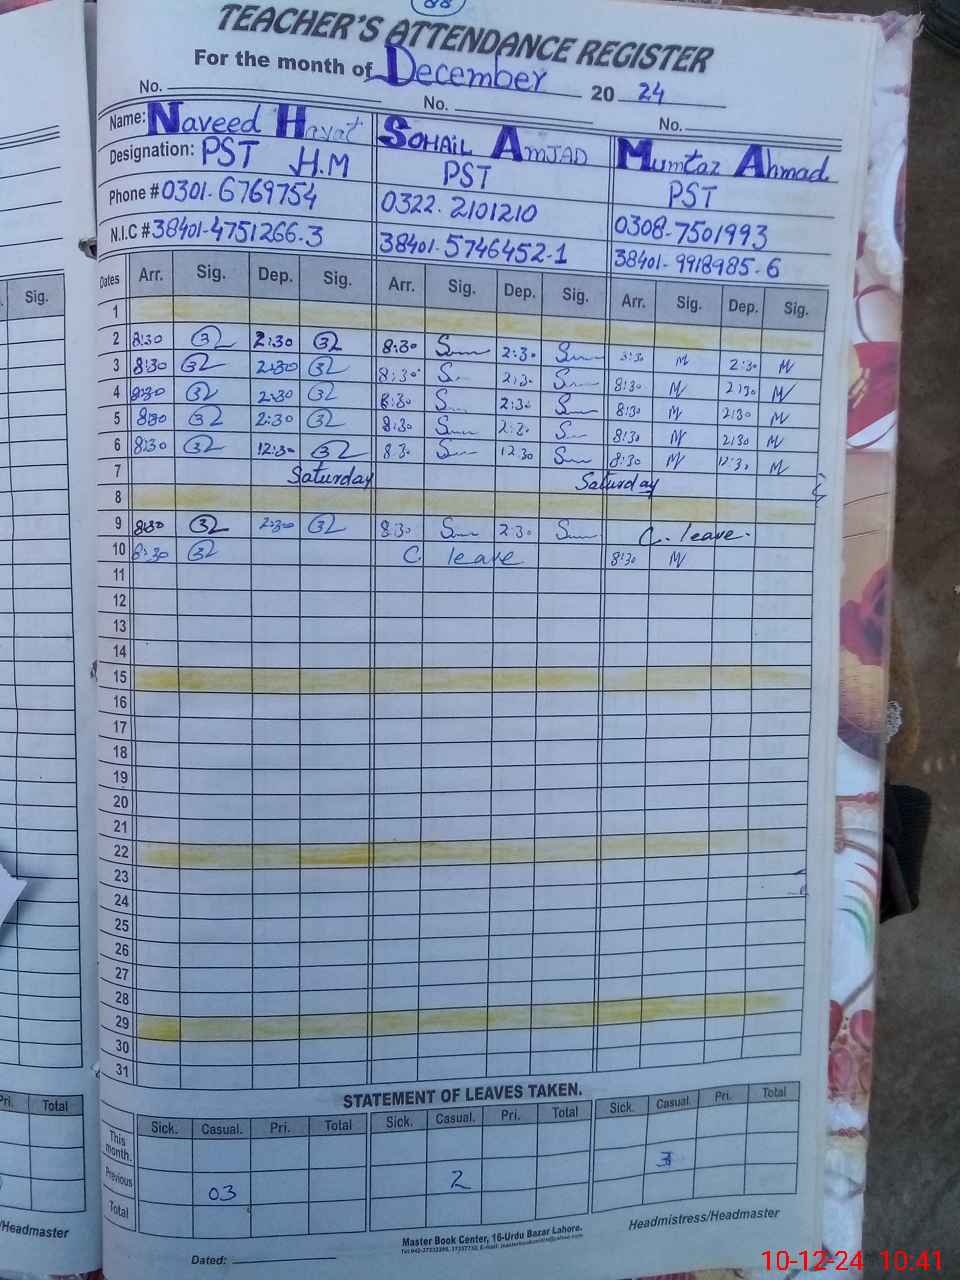 88
TEACHER'S ATTENDANCE REGISTER
For the month of December 20 24
No. No. No.
Name: Naveed Hayat Sohail Amjad Mumtaz Ahmad
Designation: PST H.M PST PST
Phone # 0301-6769754 0322-2101210 0308-7501993
N.I.C # 38401-4751266-3 38401-5746452-1 38401-9918985-6
Sig. Dates Arr. Sig. Dep. Sig. Arr. Sig. Dep. Sig. Arr. Sig. Dep. Sig.
1
2 8:30 2:30 8:30 2:30 8:30 M 2:30 M
3 8:30 2:30 8:30 2:30 8:30 M 2:30 M
4 8:30 2:30 8:30 2:30 8:30 M 2:30 M
5 8:30 2:30 8:30 2:30 8:30 M 2:30 M
6 8:30 12:30 8:30 12:30 8:30 M 12:30 M
7 Saturday Saturday
8
9 8:30 2:30 8:30 2:30 C. leave.
10 8:30 C. leave 8:30 M
11
12
13
14
15
16
17
18
19
20
21
22
23
24
25
26
27
28
29
30
31
STATEMENT OF LEAVES TAKEN.
Pri. Total Sick. Casual. Pri. Total Sick. Casual. Pri. Total Sick. Casual. Pri. Total
This month.
Previous 03 2 3
Total
/Headmaster Headmistress/Headmaster
Master Book Center, 16-Urdu Bazar Lahore.
Dated:
10-12-24 10:41